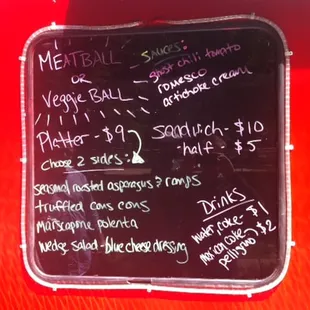 MEATBALL
OR
Veggie BALL
SAUCES:
ghost chili tomato
romesco
artichoke cream
Platter - $9
Choose 2 sides:
sandwich - $10
half - $5
seasonal roasted asparagus & ramps
truffled cous cous
Marscapone polenta
wedge salad - blue cheese dressing
Drinks
water, coke - $1
mexican coke
pelligrino - $2